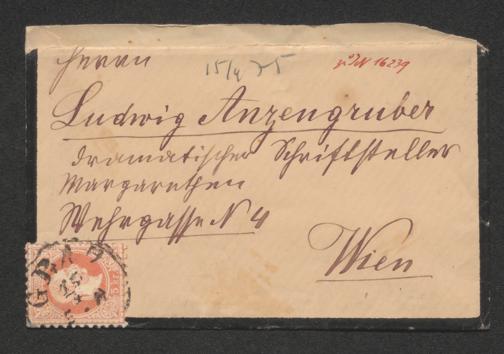 Herrn
15/4 75
Ludwig Anzengruber
dramatischer Schriftsteller
Margarethen
Wehrgasse N 4
Wien
GRAZ